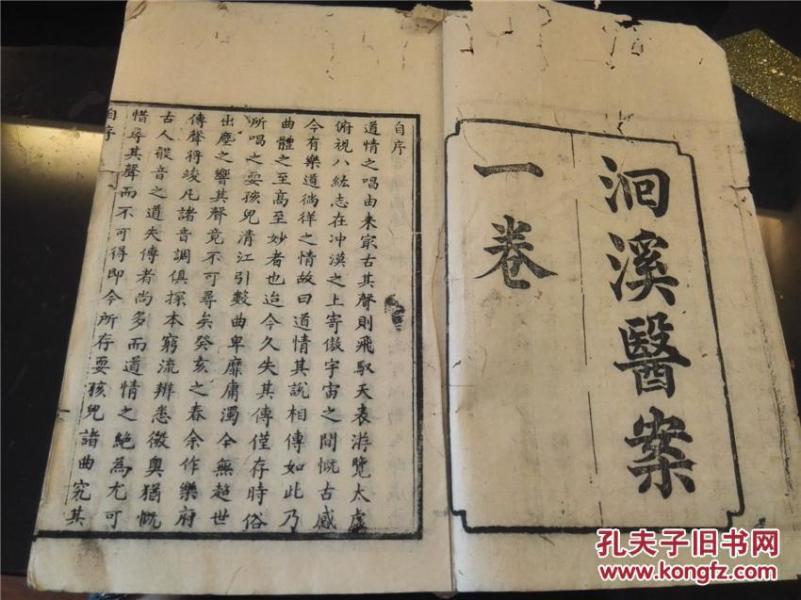 洄溪醫案
一卷
自序
道情之唱由来最古其聲則飛馭天表游覽太虛
俯視八紘志在冲漠之上寄傲宇宙之間慨古感
今有樂道徜徉之情故曰道情其說相傳如此乃
曲體之至高至妙者也迨今久失其傳僅存時俗
所唱之耍孩兒清江引數曲卑靡庸濁全無超世
出塵之響其聲竟不可尋矣癸亥之春余作樂府
傳聲将竣凡諸音調俱探本窮流辨悉微奧猶慨
古人發音之道失傳者尚多而道情之絕為尤可
惜尋其聲而不可得即今所存耍孩兒諸曲究其
自序
孔夫子旧书网
www.kongfz.com